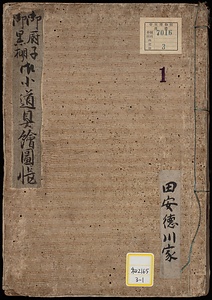 御厨子
御黒棚
御小道具繪圖帖
7016
3
1
田安徳川家
和2165
3-1